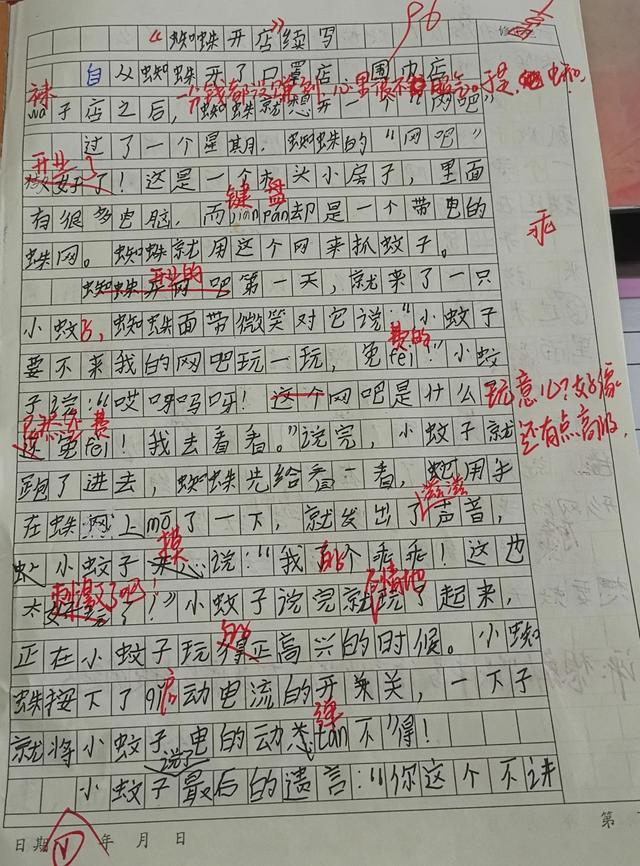 96
《蜘蛛开店》续写
自从蜘蛛开了口罩店、围巾店
袜
wà子店之后，蜘蛛就想开一个“网吧”
一分钱都没赚到，心里很不服气。于是，蜘蛛
过了一个星期，蜘蛛的“网吧”
开业
了！这是一个木头小房子，里面
键盘
有很多电脑，而jiàn pán却是一个带电的
蛛网。蜘蛛就用这个网来抓蚊子。
乖
开业的
蜘蛛开网吧第一天，就来了一只
小蚊子，蜘蛛面带微笑对它说：“小蚊子
费的
要不来我的网吧玩一玩，免fèi！”小蚊
子说：“哎呀妈呀！这个网吧是什么
玩意儿？好像
还有点高级，
居然免费
还免fèi！我去看看。”说完，小蚊子就
跑了进去，蜘蛛先给看一看，蚊用手
滋滋
在蛛网上mō了一下，就发出了声音，
摸
小蚊子说：“我的个乖乖！这也
刺激了吧
太好玩了！”小蚊子说完就玩了起来，
正在小蚊子玩得正高兴的时候。小蜘
启
蛛按下了qǐ动电流的开关，一下子
弹
就将小蚊子电的动态tán不得！
说了
小蚊子最后的遗言：“你这个不讲
日期 年 月 日
第